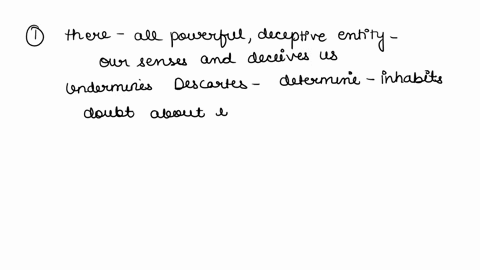 ① there - all powerful, deceptive entity -
our senses and deceives us
Undermines Descartes - determine - inhabits
doubt about